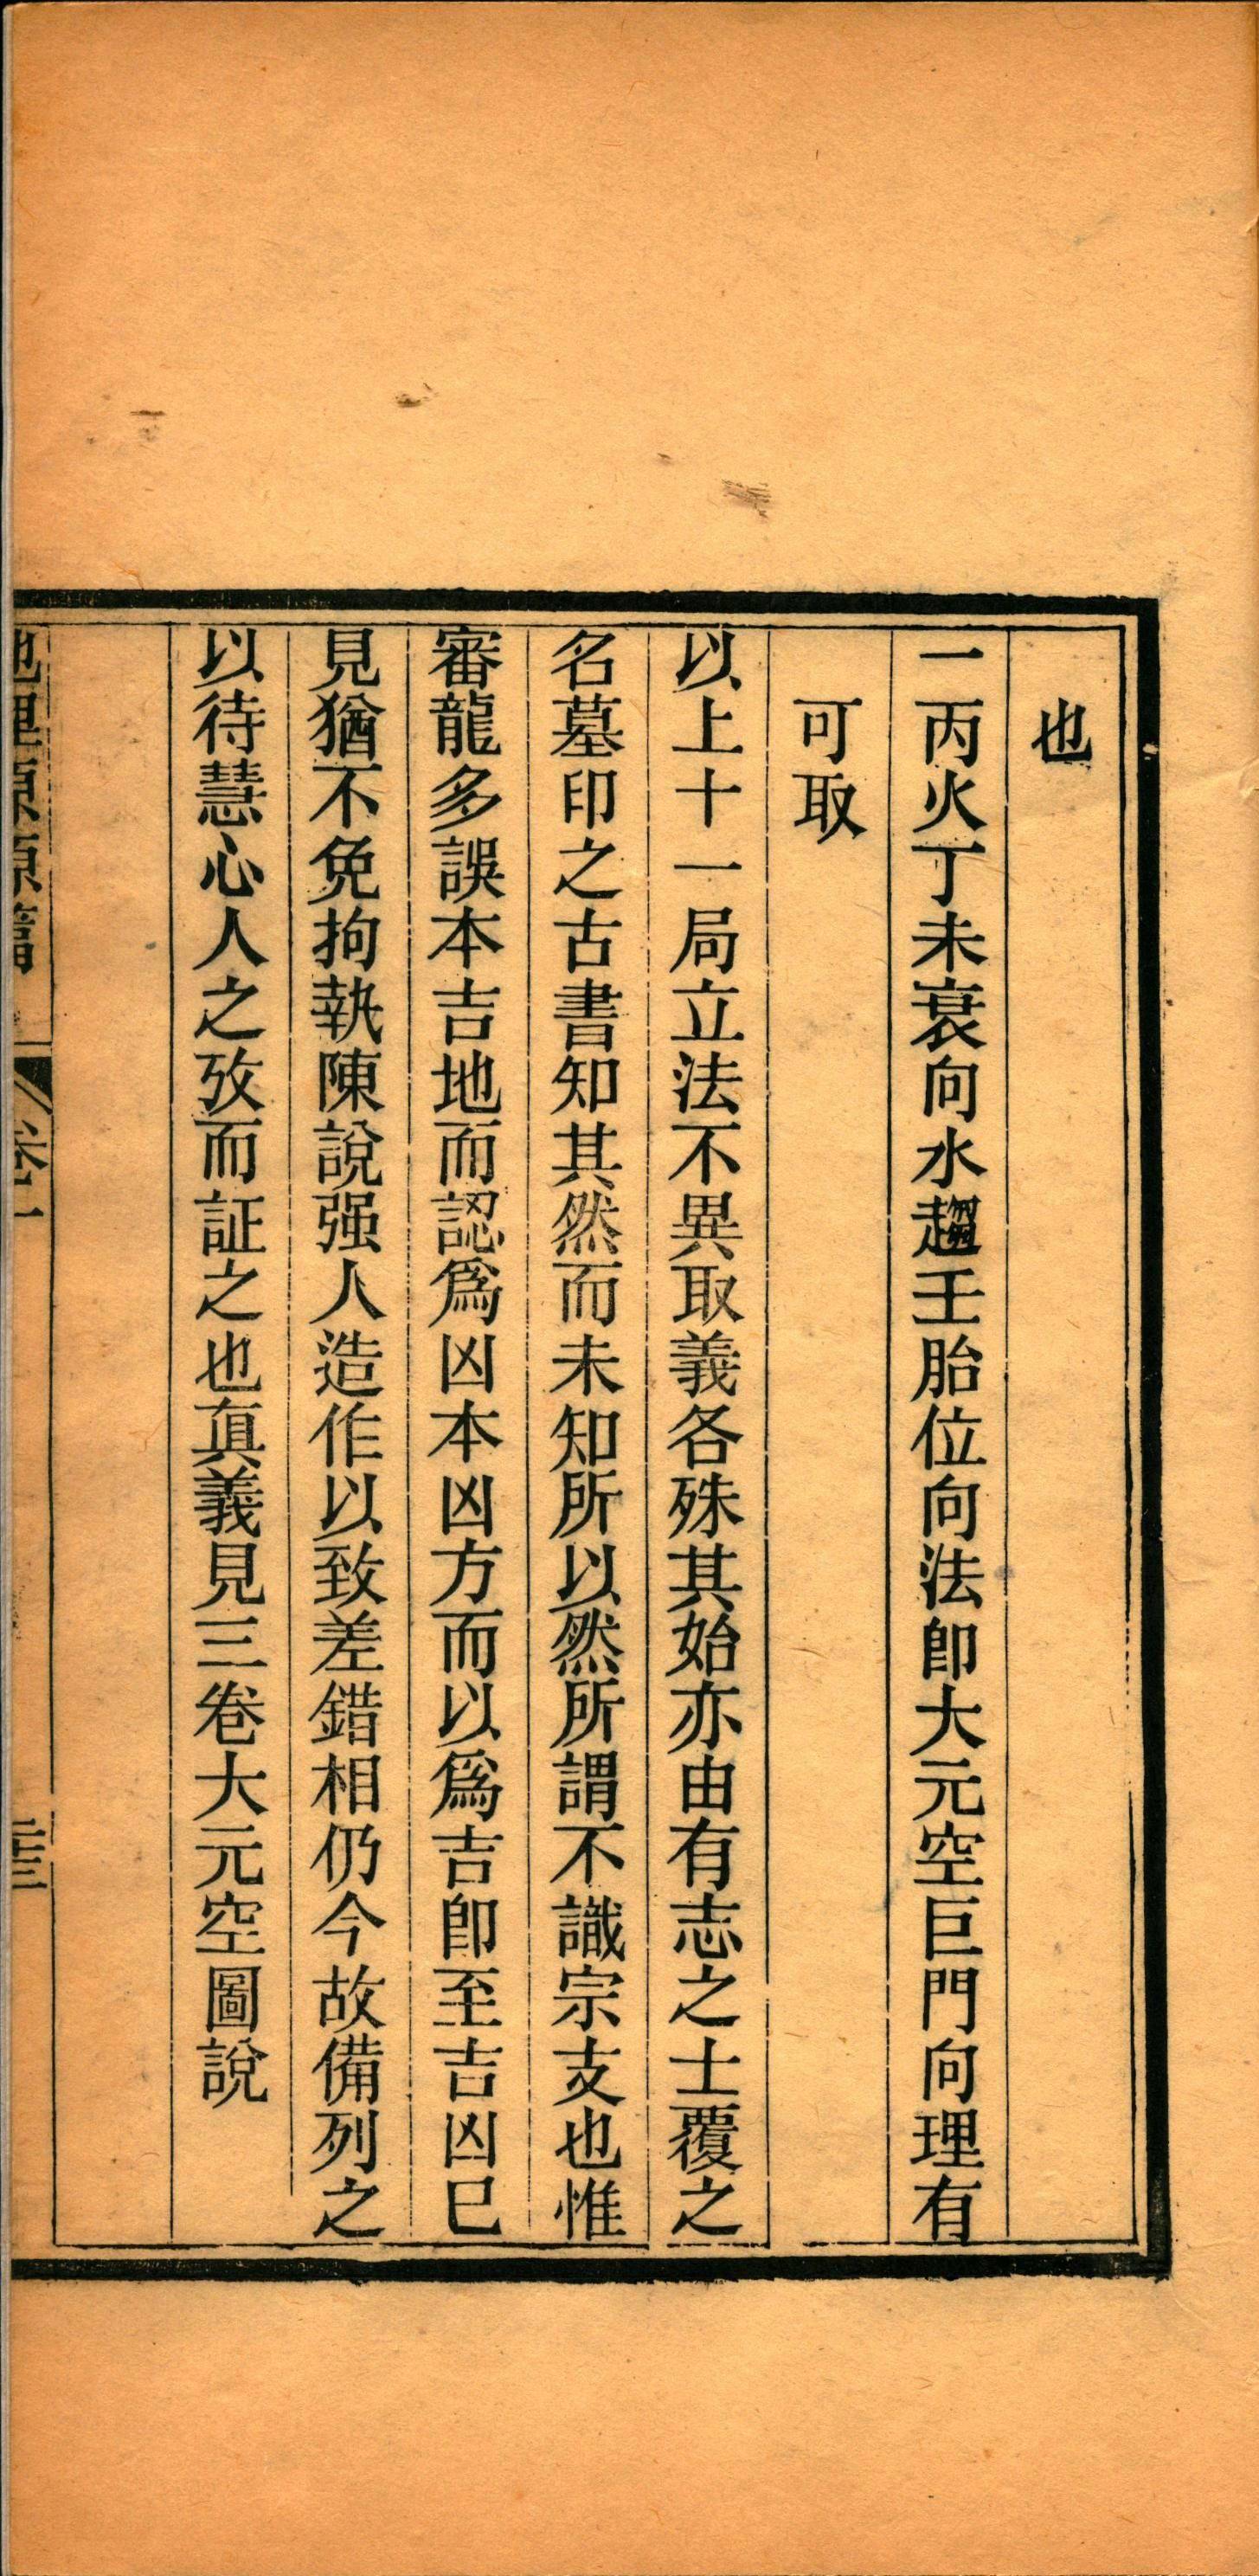 也
一丙火丁未衰向水趨壬胎位向法卽大元空巨門向理有
可取
以上十一局立法不異取義各殊其始亦由有志之士覆之
名墓印之古書知其然而未知所以然所謂不識宗支也惟
審龍多誤本吉地而認爲凶本凶方而以爲吉卽至吉凶巳
見猶不免拘執陳說强人造作以致差錯相仍今故備列之
以待慧心人之攷而証之也真義見三卷大元空圖說
地理原原篇 卷一